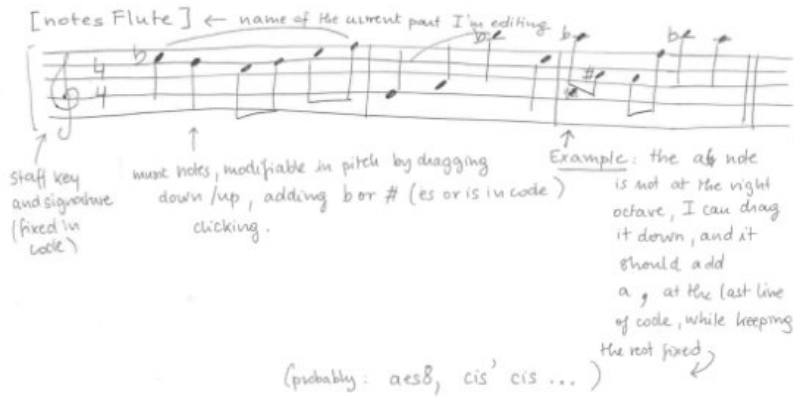 [notes Flute] ← name of the current part I'm editing
b b b b
4
4 #
staff key
and signature
(fixed in
code)
music notes, modifiable in pitch by dragging
down/up, adding b or # (es or is in code)
clicking.
Example: the ab note
is not at the right
octave, I can drag
it down, and it
should add
a , at the last line
of code, while keeping
the rest fixed
(probably: aes8, cis' cis ... )